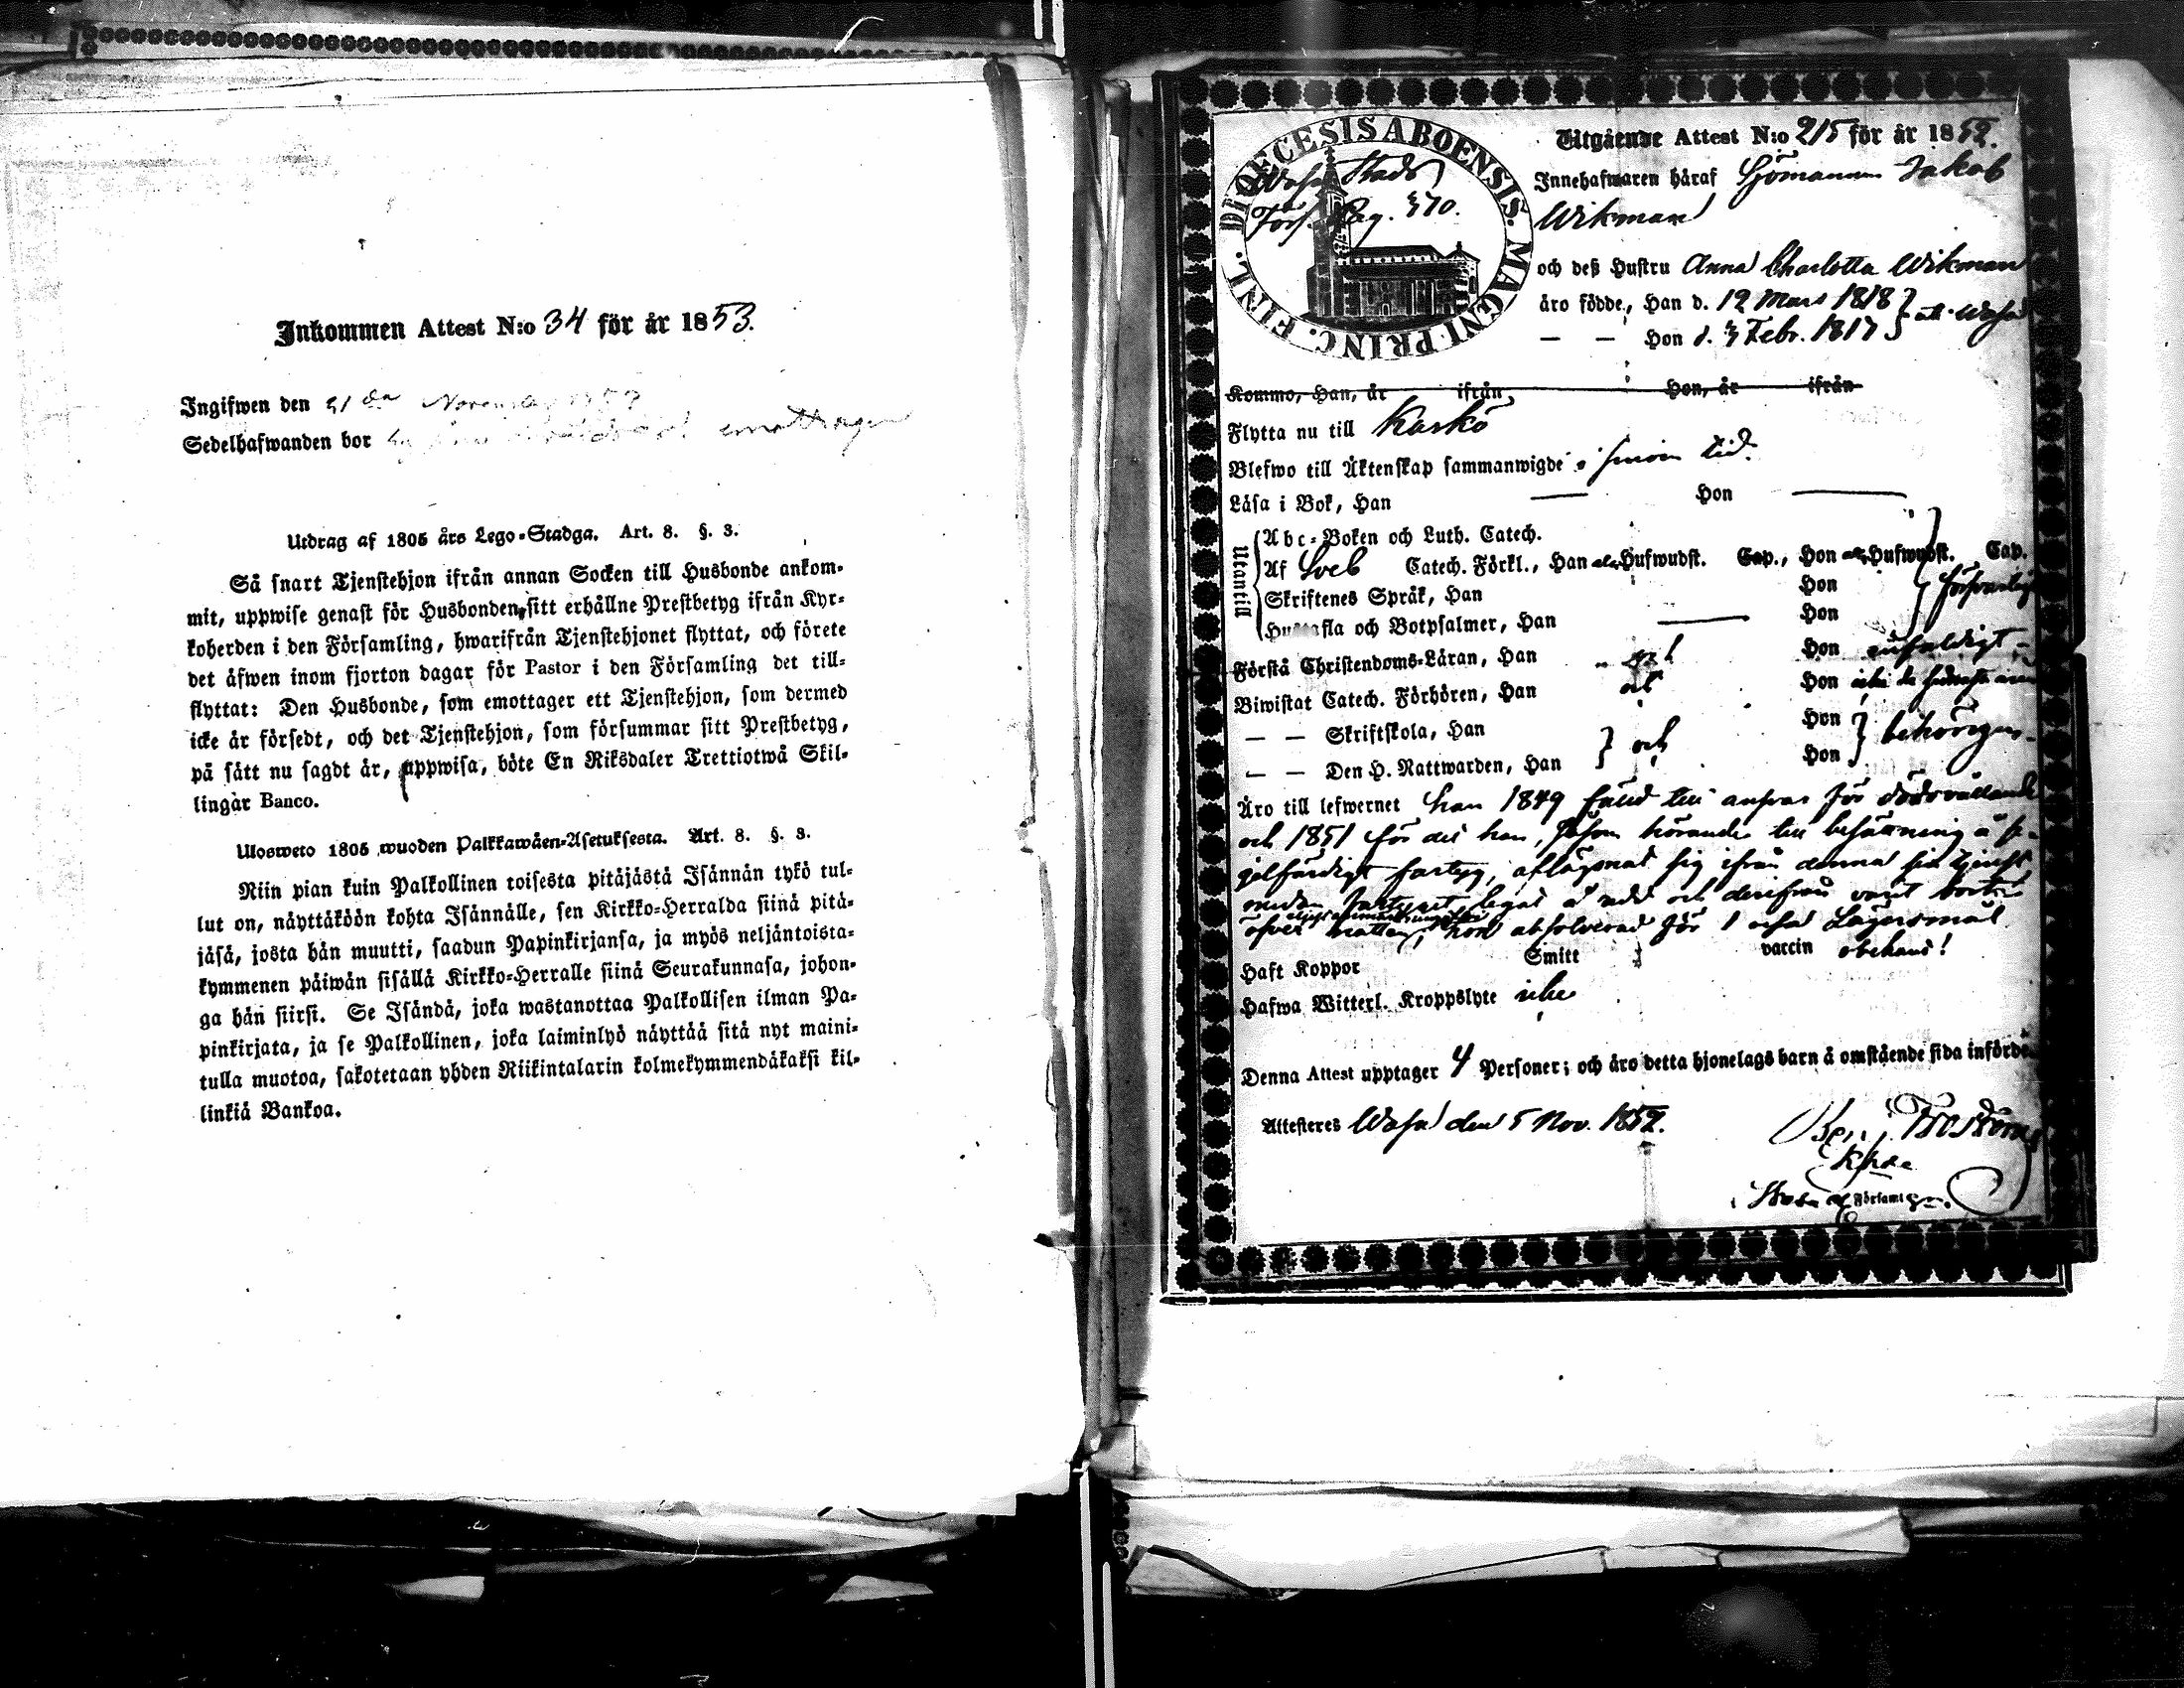 Inkommen Attest N:o 34 för år 1853.
Ingifwen den 21 da November
Sedelhafwanden bor
Utdrag af 1805 års Lego-Stadga. Art. 8. §. 3.
Så snart Tjenstehjon ifrån annan Socken till Husbonde ankom-
mit, uppwise genast för Husbonden sitt erhållne Prestbetyg ifrån Kyr-
koherden i den Församling, hwarifrån Tjenstehjonet flyttat, och förete
det äfwen inom fjorton dagar för Pastor i den Församling det till-
flyttat: Den Husbonde, som emottager ett Tjenstehjon, som dermed
icke är försedt, och det Tjenstehjon, som försummar sitt Prestbetyg,
på sätt nu sagdt är, uppwisa, böte En Riksdaler Trettiotwå Skil-
lingar Banco.
Ulosweto 1805 wuoden Palkkawäen-Asetuksesta. Art. 8. §. 3.
Niin pian kuin Palkollinen toisesta pitäjästä Isännän tykö tul-
lut on, näyttäköön kohta Isännälle, sen Kirkko-Herralda siinä pitä-
jäsä, josta hän muutti, saadun Papinkirjansa, ja myös neljäntoista-
kymmenen päiwän sisällä Kirkko-Herralle siinä Seurakunnasa, johon-
ga hän siirsi. Se Isändä, joka wastanottaa Palkollisen ilman Pa-
pinkirjata, ja se Palkollinen, joka laiminlyö näyttää sitä nyt maini-
tulla muotoa, sakotetaan yhden Riikintalarin kolmekymmendäkaksi kil-
linkiä Bankoa.
DIOECESIS ABOENSIS. MAGNI PRINC. FINL.
Wasa Stads
Förs. Pag. 370.
Utgående Attest N:o 215 för år 1852.
Innehafwaren häraf Sjömannen Jakob
Wikman
och deß Hustru Anna Charlotta Wikman
äro födde, Han d. 12 Mars 1818
— — Hon d. 3 Febr. 1817 } uti Wasa
Kommo, Han, år ifrån Hon, år ifrån
Flytta nu till Kaskö
Blefwo till Äktenskap sammanwigde i sinom tid.
Läsa i Bok, Han — Hon —
Utantill
Abc-Boken och Luth. Catech.
Af Sveb Catech. Förkl., Han Hufwudst. Cap., Hon Hufwudst. Cap.
Skriftenes Språk, Han Hon försvarligt
Hustafla och Botpsalmer, Han — Hon
Förstå Christendoms-Läran, Han och Hon enfaldigt
Biwistat Catech. Förhören, Han och Hon icke de sednaste åren
— — Skriftskola, Han Hon
— — Den H. Nattwarden, Han } och Hon } behörigen
Äro till lefwernet han 1849 fälld till answar för dödsvållande
och 1851 för det han, såsom hörande till besättning å se-
gelfärdigt fartyg, aflägsnat sig ifrån denna sin tjenst
medan fartyget legat å redd och derifrån varit borta
öfver natten, hon absolverad för 1 resa Lägersmål
Haft Koppor Smitt vaccin obekant!
Hafwa Witterl. Kroppslyte icke
Denna Attest upptager 4 Personer; och äro detta hjonelags barn å omstående sida införde
Attesteres Wasa den 5 Nov. 1852.
Församl